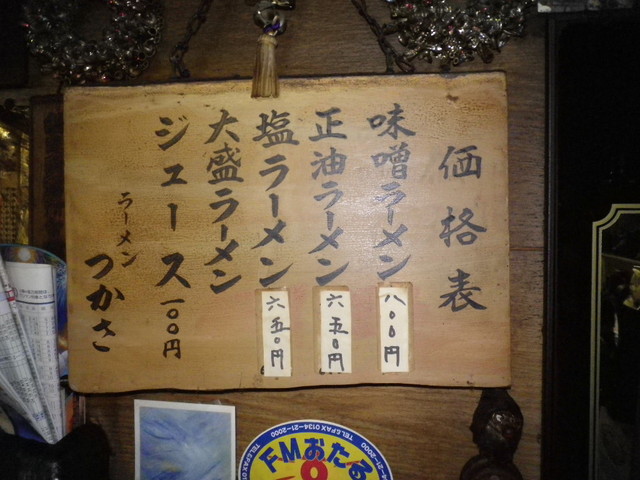 価格表
味噌ラーメン 八〇〇円
正油ラーメン 六五〇円
塩ラーメン 六五〇円
大盛ラーメン
ジュース 一〇〇円
ラーメン
つかさ
TEL&FAX 0134-21-2000
FMおたる